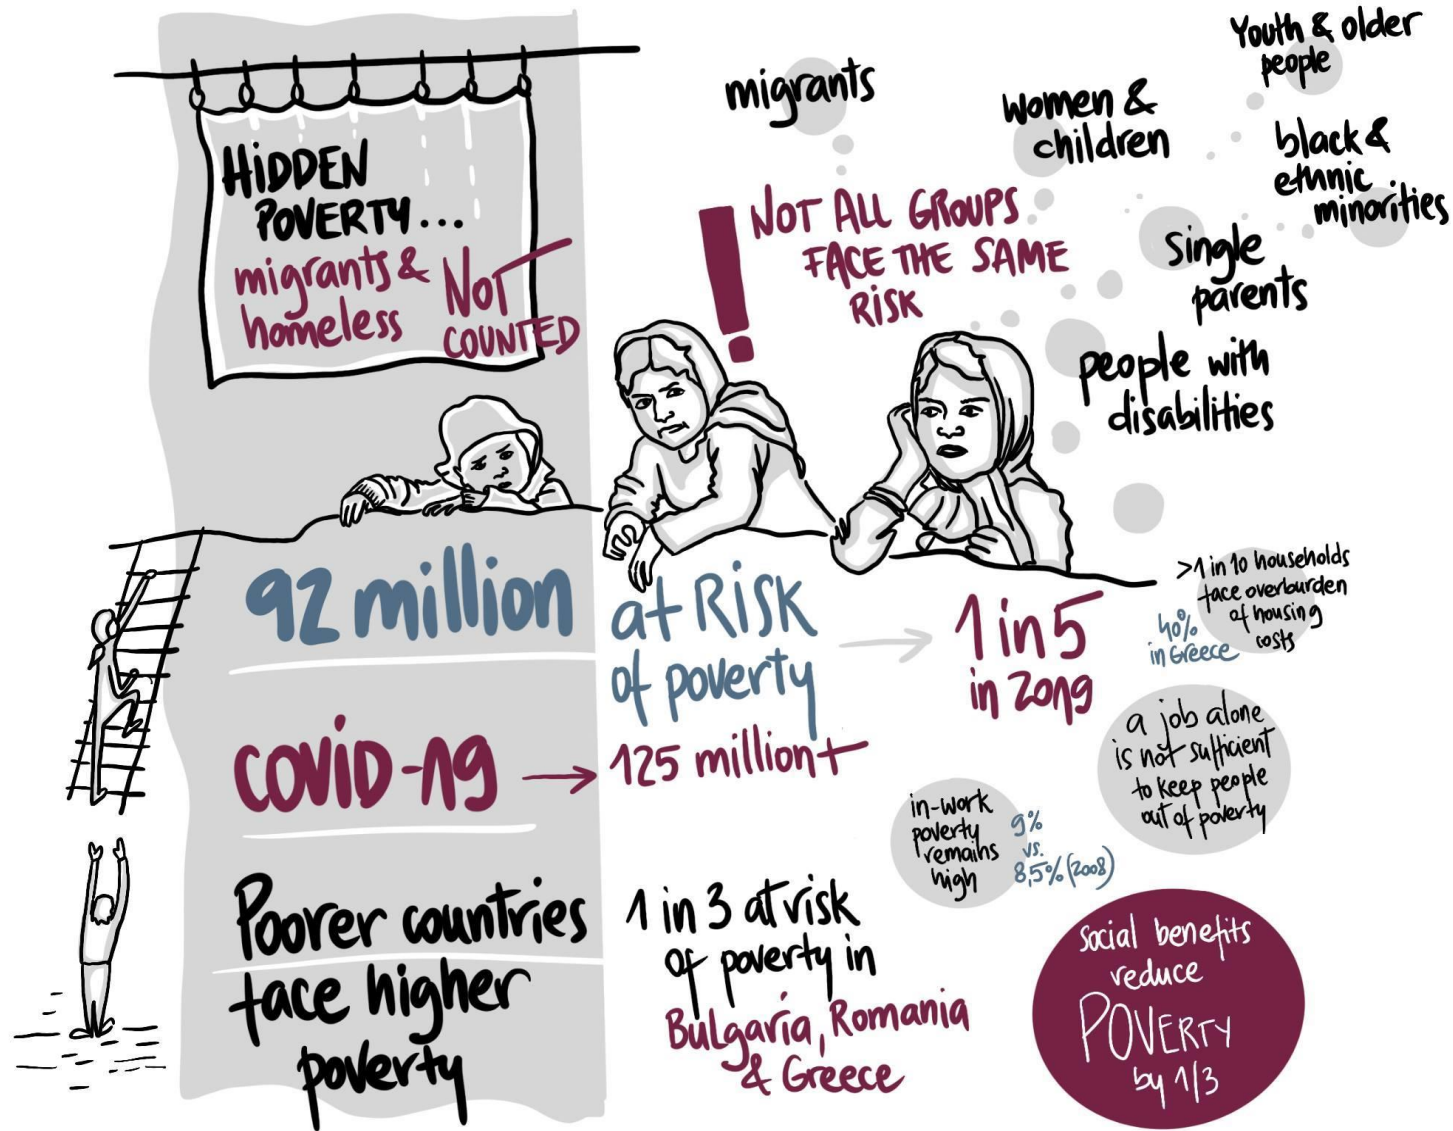 HiDDEN
POVERTY...
migrants &
homeless
NOT
COUNTED
migrants
women &
children
Youth & older
people
black &
ethnic
minorities
single
parents
people with
disabilities
! NOT ALL GROUPS
FACE THE SAME
RiSK
92 million
at RiSK
of poverty
1 in 5
in 2019
>1 in 10 households
face overburden
of housing
costs
40%
in Greece
COViD-19
125 million+
a job alone
is not sufficient
to keep people
out of poverty
in-work
poverty
remains
high
9%
vs.
8,5% (2008)
Poorer countries
face higher
poverty
1 in 3 at risk
of poverty in
Bulgaria, Romania
& Greece
social benefits
reduce
POVERTY
by 1/3